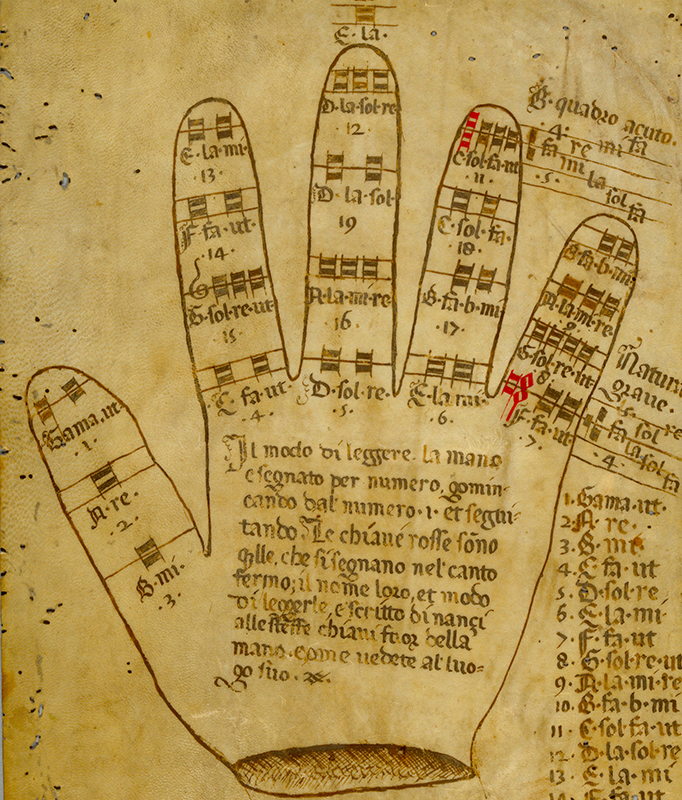 E·la·
D·la·sol·re
·12·
E·la·mi·
·13·
C·sol·fa·ut
·11·
B·quadro acuto·
·4· re mi fa
fa mi la sol fa
·5·
D·la·sol·
19
F·fa·ut·
·14·
C·sol·fa·
·18·
B·fa·b·mi·
G·sol·re·ut·
15
A·la·mi·re·
16
B·fa·b·mi
·17·
A·la·mi·re·
·9·
G·sol·re·ut·
·8·
C·fa·ut·
·4·
D·sol·re·
·5·
E·la·mi·
·6·
F·fa·ut·
·7·
Natura
grave·
sol re
fa la sol fa
·4·
Gama·ut·
·1·
A·re·
·2·
B·mi·
·3·
Il modo di leggere la mano
e segnato per numero, comin-
cando dal numero ·1· et segui-
tando. Le chiaue rosse sono
qlle, che si segnano nel canto
fermo; il nome loro, et modo
di leggerle, e scritto dinanci
alle steffe chiaui fuor della
mano, come uedete al luo-
go suo.
1·Gama·ut·
2·A·re·
3·B·mi·
4·C·fa·ut
5·D·sol·re
6·E·la·mi
7·F·fa·ut
8·G·sol·re·ut
9·A·la·mi·re
10·B·fa·b·mi
11·C·sol·fa·ut
12·D·la·sol·re
13·E·la·mi
14·F·fa·ut